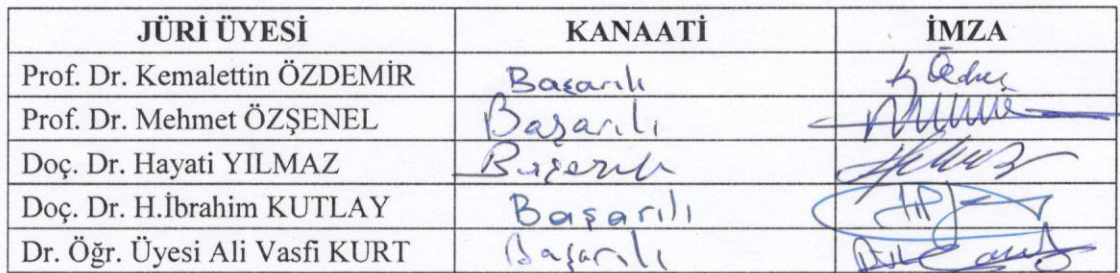 JÜRİ ÜYESİ KANAATİ İMZA
Prof. Dr. Kemalettin ÖZDEMİR Başarılı
Prof. Dr. Mehmet ÖZŞENEL Başarılı
Doç. Dr. Hayati YILMAZ Başarılı
Doç. Dr. H.İbrahim KUTLAY Başarılı
Dr. Öğr. Üyesi Ali Vasfi KURT Başarılı